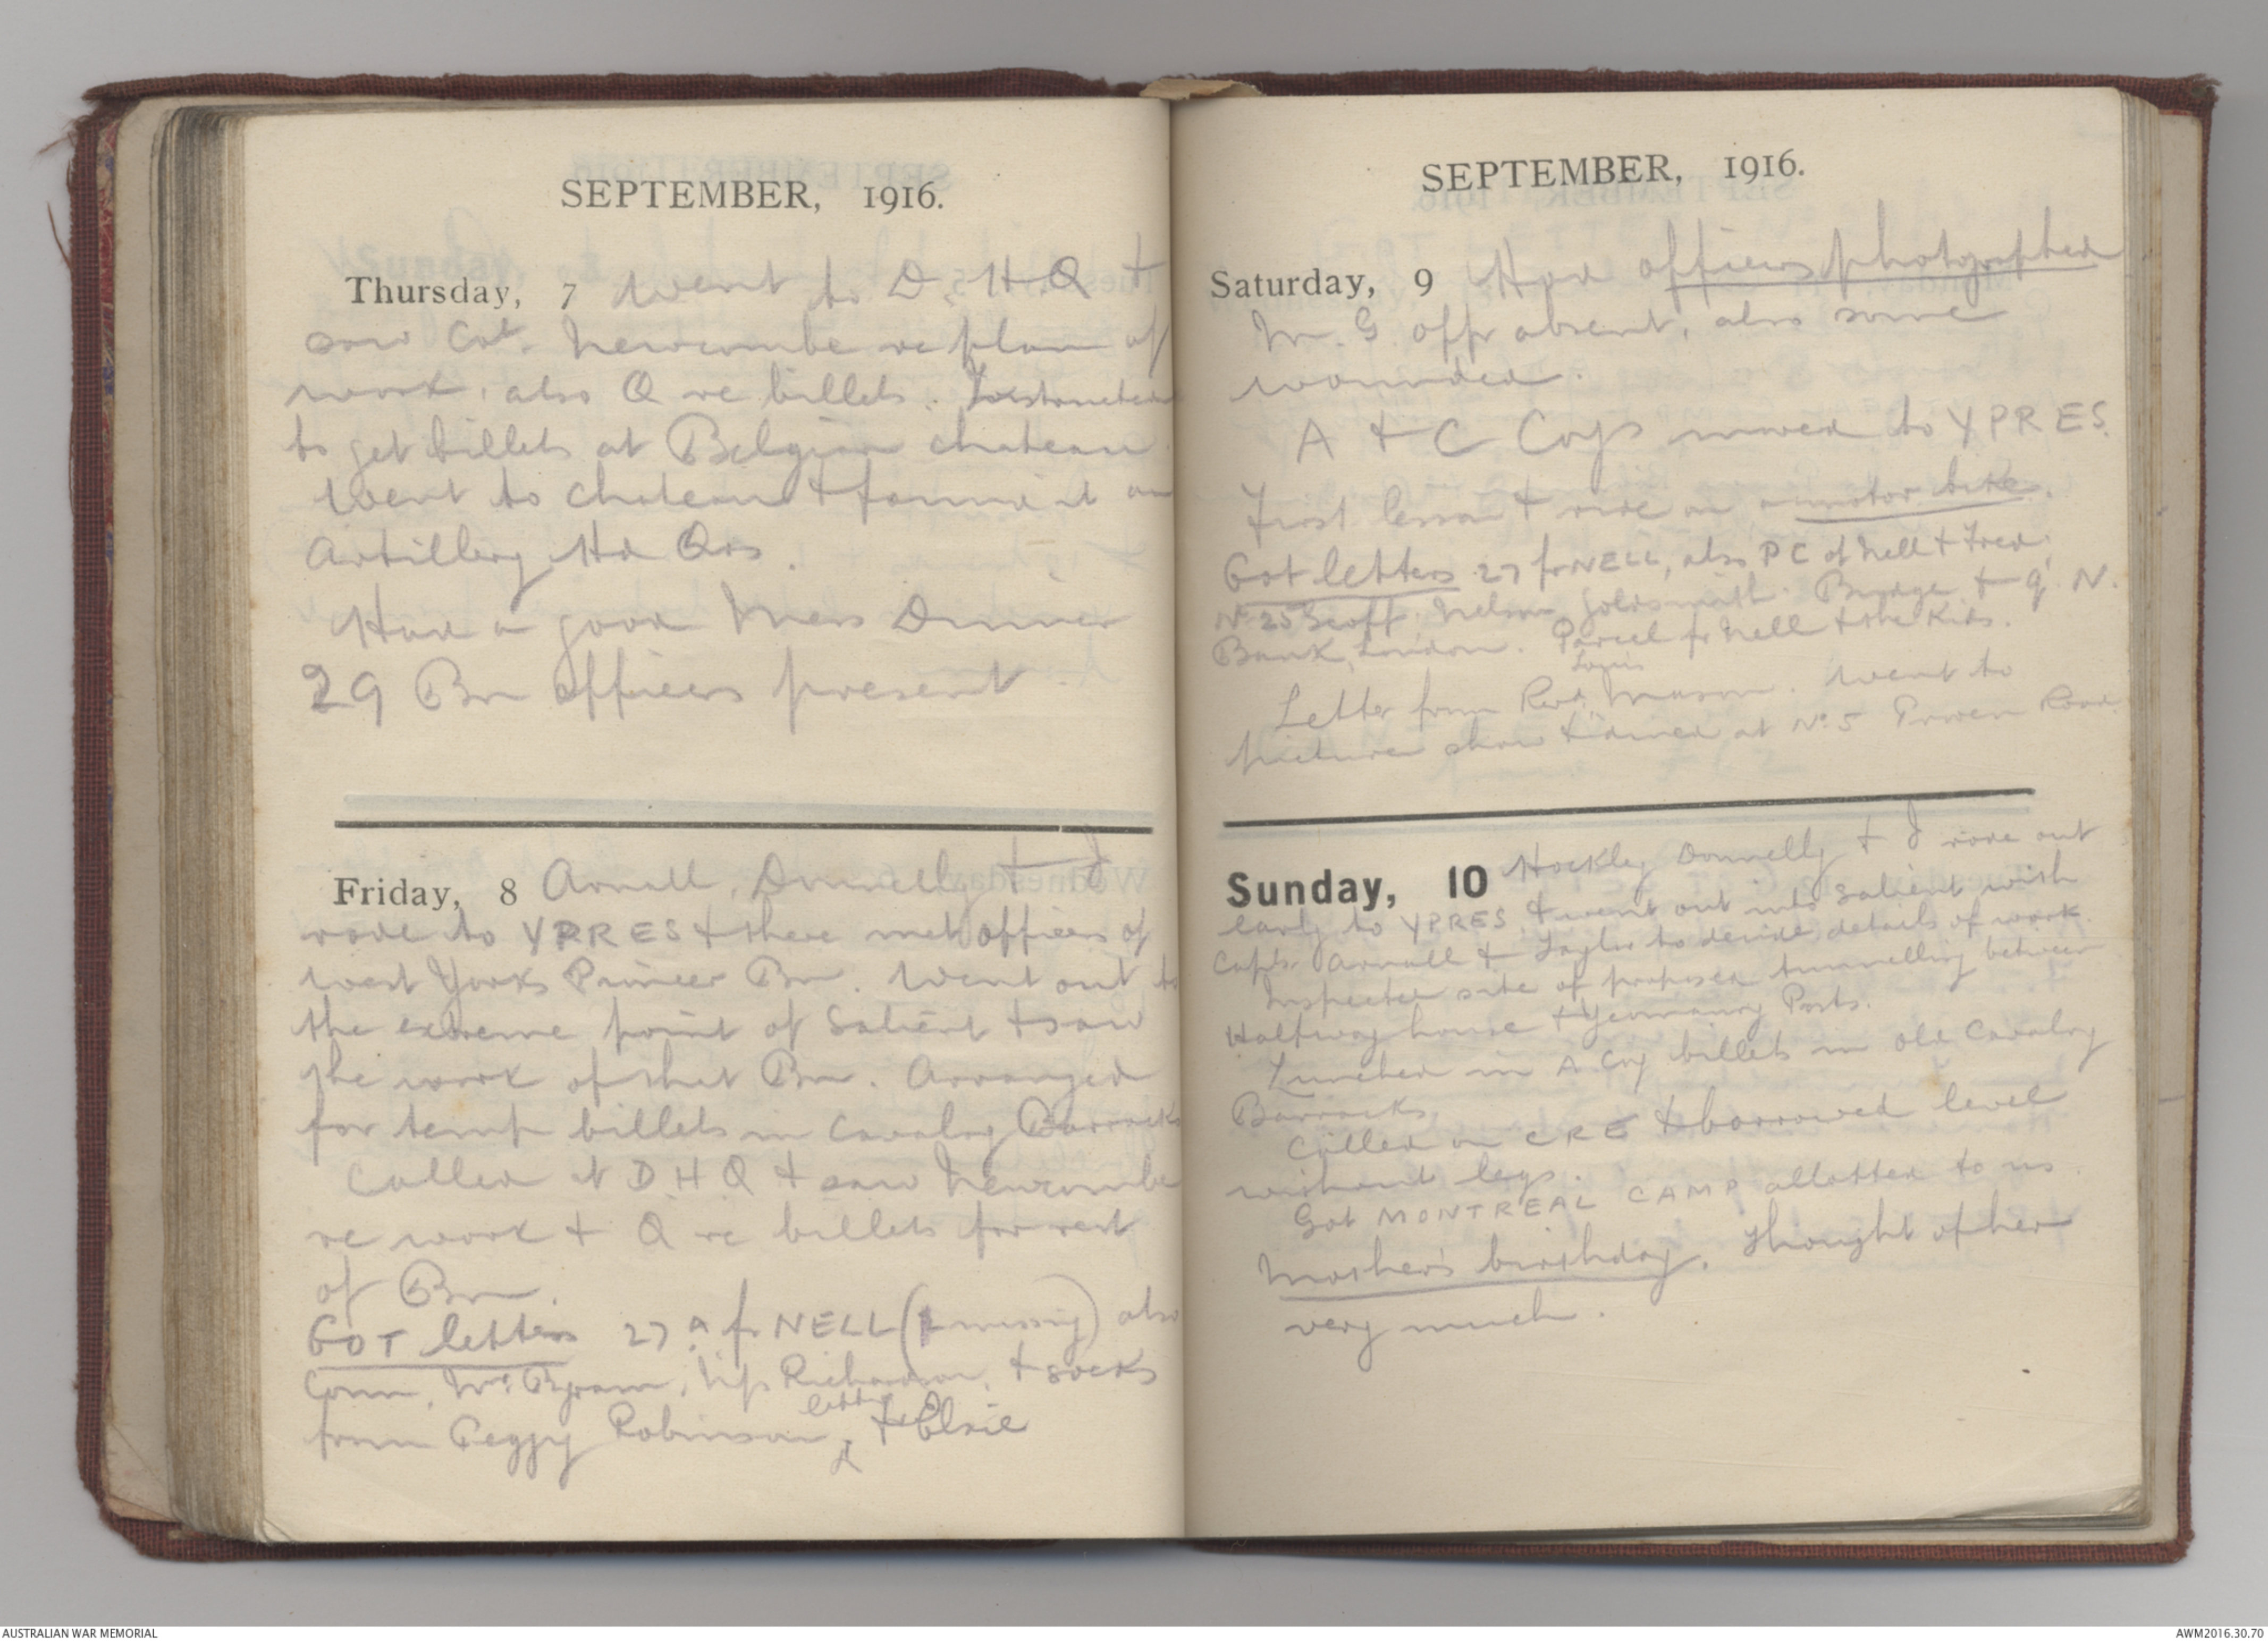 SEPTEMBER, 1916.
Thursday, 7 Went to D.H.Q +
saw Col. Newcombe re plan of
work, also Q re billets. Instructed
to get billets at Belgian chateau.
Went to chateau & found it an
Artillery Hd Qrs.
Had a good Mess Dinner
29 Bn Officers present.
Friday, 8 Arnall, Donnelly + I
rode to YPRES + there met officers of
West Yorks Pioneer Bn. Went out to
the extreme point of Salient + saw
the work of that Bn. Arranged
for temp billets in Cavalry Barracks
Called at D H Q + saw Newcombe
re work + Q re billets for rest
of Bn.
GOT letters 27 A fr NELL (1 missing) also
Conn, Mrs Byram, Richardson, + socks
letter
from Peggy Robinson + Elsie
SEPTEMBER, 1916.
Saturday, 9 Had officers photographed
M.G. offr absent, also some
wounded.
A + C Coys moved to YPRES.
First lesson + ride on a motor bike.
Got letters 27 fr NELL, also PC of Nell + Fred
No 25 Geoff, Nelson, Goldsmith. Budge + Q. N.
Bank, London. Parcel fr Nell + the Kids.
Letter from Revd Mason. Went to
picture show + dined at No. 5 Proven Road.
Sunday, 10 Hockley Donnelly + I rode out
early to YPRES, + went out into Salient with
Capts. Arnall + Taylor to decide details of work.
Inspected site of proposed tunnelling between
Halfway house + Yeomanry Posts.
Lunched in A Coy billets in old Cavalry
Barracks.
Called on CRE + borrowed level
without legs.
Got MONTREAL CAMP allotted to us.
Mother's birthday. Thought of her
very much.
AUSTRALIAN WAR MEMORIAL
AWM2016.30.70